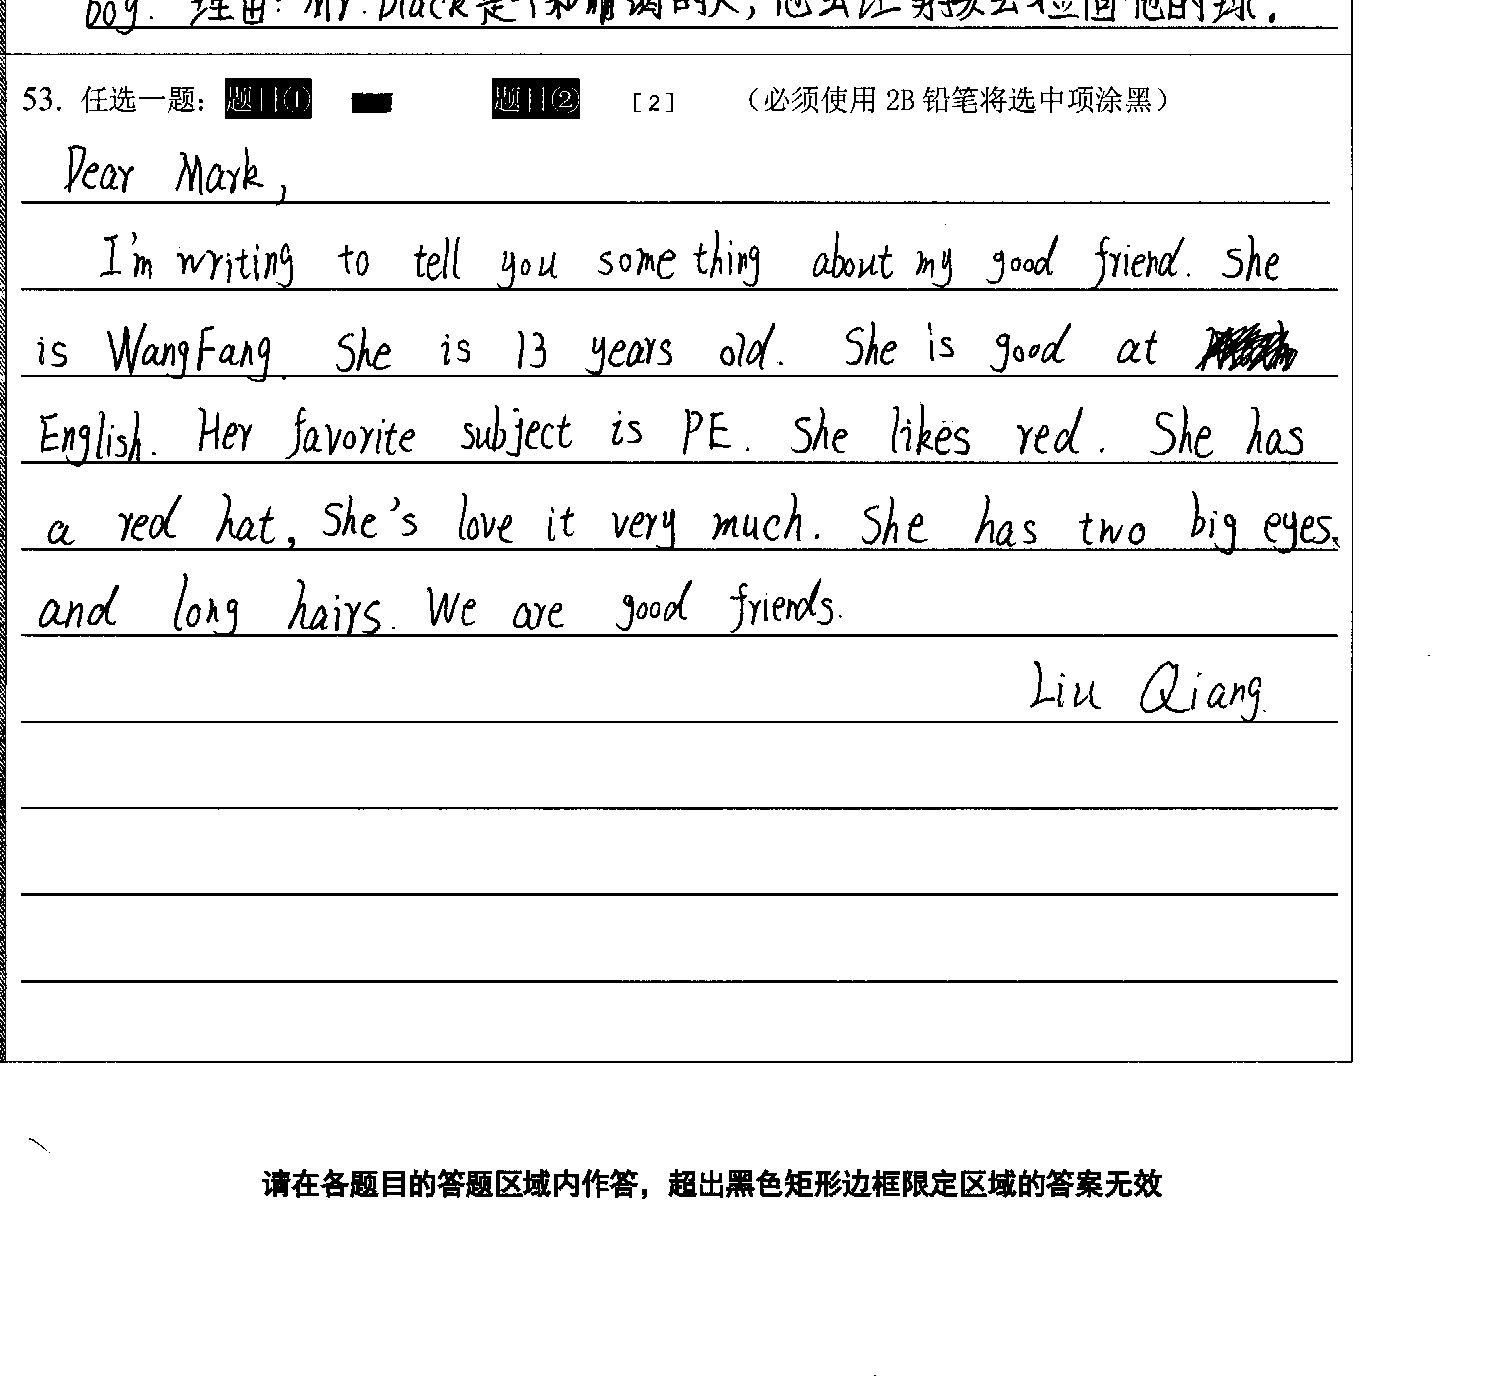 boy. 理由: Mr. Black是个和
53. 任选一题: 题目① 题目② [2] (必须使用 2B 铅笔将选中项涂黑)
Dear Mark,
I'm writing to tell you something about my good friend. She
is WangFang. She is 13 years old. She is good at
English. Her favorite subject is PE. She likes red. She has
a red hat, She's love it very much. She has two big eyes.
and long hairs. We are good friends.
Liu Qiang.
请在各题目的答题区域内作答，超出黑色矩形边框限定区域的答案无效